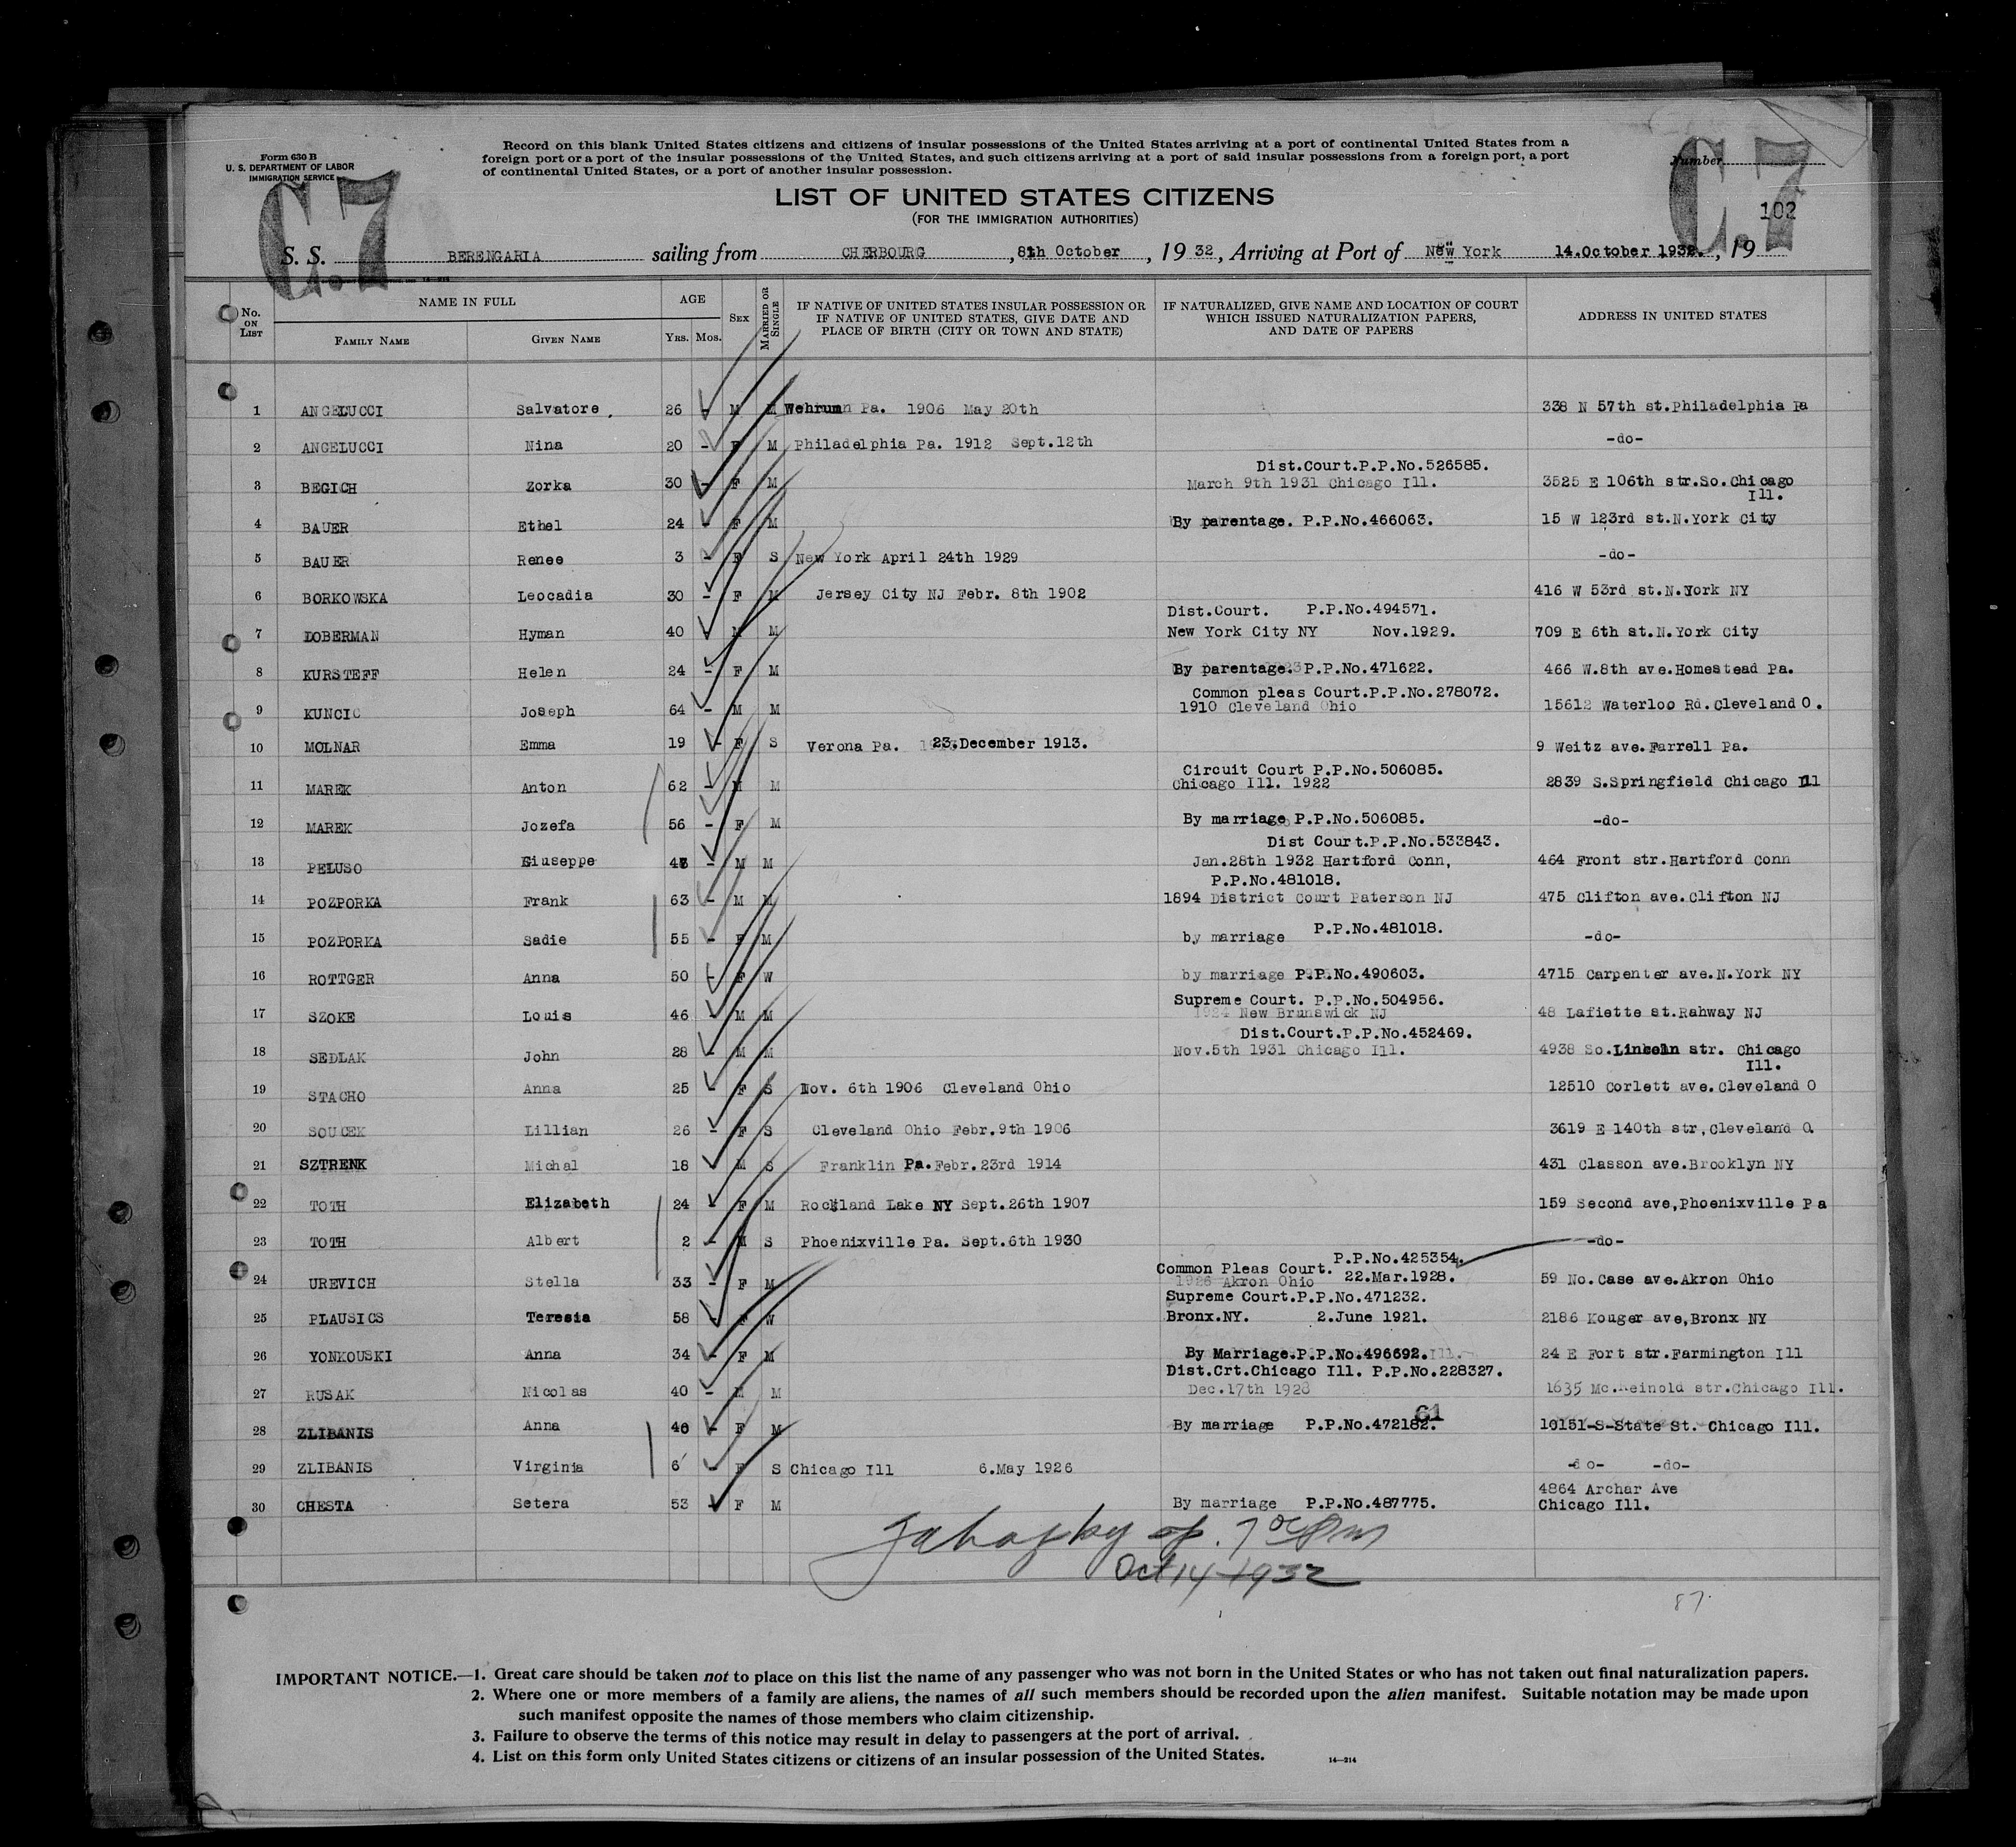 Form 630 B
U. S. DEPARTMENT OF LABOR
IMMIGRATION SERVICE
Record on this blank United States citizens and citizens of insular possessions of the United States arriving at a port of continental United States from a
foreign port or a port of the insular possessions of the United States, and such citizens arriving at a port of said insular possessions from a foreign port, a port
of continental United States, or a port of another insular possession.
Number
C.7
C.7
102
LIST OF UNITED STATES CITIZENS
(FOR THE IMMIGRATION AUTHORITIES)
S. S. BERENGARIA sailing from CHERBOURG , 8th October , 19 32 , Arriving at Port of New York 14.October 1932. , 19
No. ON LIST
NAME IN FULL
FAMILY NAME
GIVEN NAME
AGE
YRS. MOS.
SEX
MARRIED OR SINGLE
IF NATIVE OF UNITED STATES INSULAR POSSESSION OR
IF NATIVE OF UNITED STATES, GIVE DATE AND
PLACE OF BIRTH (CITY OR TOWN AND STATE)
IF NATURALIZED, GIVE NAME AND LOCATION OF COURT
WHICH ISSUED NATURALIZATION PAPERS,
AND DATE OF PAPERS
ADDRESS IN UNITED STATES
1 ANGELUCCI Salvatore. 26 - M M Wehrum Pa. 1906 May 20th 338 N 57th st.Philadelphia Pa
2 ANGELUCCI Nina 20 - F M Philadelphia Pa. 1912 Sept.12th -do-
Dist.Court.P.P.No.526585.
3 BEGICH Zorka 30 - F M March 9th 1931 Chicago Ill. 3525 E 106th str.So.Chicago
Ill.
4 BAUER Ethel 24 - F M By parentage. P.P.No.466063. 15 W 123rd st.N.York City
5 BAUER Renee 3 - F S New York April 24th 1929 -do-
6 BORKOWSKA Leocadia 30 - F M Jersey City NJ Febr. 8th 1902 416 W 53rd st.N.York NY
Dist.Court. P.P.No.494571.
7 DOBERMAN Hyman 40 - M M New York City NY Nov.1929. 709 E 6th st.N.York City
8 KURSTEFF Helen 24 - F M By parentage. P.P.No.471622. 466 W.8th ave.Homestead Pa.
Common pleas Court.P.P.No.278072.
9 KUNCIC Joseph 64 - M M 1910 Cleveland Ohio 15612 Waterloo Rd.Cleveland O.
10 MOLNAR Emma 19 - F S Verona Pa. 23.December 1913. 9 Weitz ave.Farrell Pa.
Circuit Court P.P.No.506085.
11 MAREK Anton 62 - M M Chicago Ill. 1922 2839 S.Springfield Chicago Ill
12 MAREK Jozefa 56 - F M By marriage P.P.No.506085. -do-
Dist Court.P.P.No.533843.
13 PELUSO Giuseppe - M M Jan.28th 1932 Hartford Conn, 464 Front str.Hartford Conn
P.P.No.481018.
14 POZPORKA Frank 63 - M M 1894 District Court Paterson NJ 475 Clifton ave.Clifton NJ
15 POZPORKA Sadie 55 - F M by marriage P.P.No.481018. -do-
16 ROTTGER Anna 50 - F W by marriage P.P.No.490603. 4715 Carpenter ave.N.York NY
Supreme Court. P.P.No.504956.
17 SZOKE Louis 46 - M M 1924 New Brunswick NJ 48 Lafiette st.Rahway NJ
Dist.Court.P.P.No.452469.
18 SEDLAK John 28 - M M Nov.5th 1931 Chicago Ill. 4938 So.Lincoln str. Chicago
Ill.
19 STACHO Anna 25 - F S Nov. 6th 1906 Cleveland Ohio 12510 Corlett ave.Cleveland O
20 SOUCEK Lillian 26 - F S Cleveland Ohio Febr.9th 1906 3619 E 140th str,Cleveland O.
21 SZTRENK Michal 18 M S Franklin Pa.Febr.23rd 1914 431 Classon ave.Brooklyn NY
22 TOTH Elizabeth 24 - F M Rockland Lake NY Sept.26th 1907 159 Second ave,Phoenixville Pa
23 TOTH Albert 2 - M S Phoenixville Pa. Sept.6th 1930 -do-
P.P.No.425354.
Common Pleas Court.
24 UREVICH Stella 33 - F M 1926 Akron Ohio 22.Mar.1928. 59 No.Case ave.Akron Ohio
Supreme Court.P.P.No.471232.
25 PLAUSICS Teresia 58 - F W Bronx.NY. 2.June 1921. 2186 Kouger ave,Bronx NY
26 YONKOUSKI Anna 34 - F M By Marriage.P.P.No.496692. 24 E Fort str.Farmington Ill
Dist.Crt.Chicago Ill. P.P.No.228327.
27 RUSAK Nicolas 40 - M M Dec.17th 1928 1635 Mc.Reinold str.Chicago Ill.
61
28 ZLIBANIS Anna 40 - F M By marriage P.P.No.472182. 10151-S-State St. Chicago Ill.
29 ZLIBANIS Virginia 6 - F S Chicago Ill 6.May 1926 -do- -do-
4864 Archar Ave
30 CHESTA Setera 53 - F M By marriage P.P.No.487775. Chicago Ill.
Oct 14-1932
87
IMPORTANT NOTICE.—1. Great care should be taken not to place on this list the name of any passenger who was not born in the United States or who has not taken out final naturalization papers.
2. Where one or more members of a family are aliens, the names of all such members should be recorded upon the alien manifest. Suitable notation may be made upon
such manifest opposite the names of those members who claim citizenship.
3. Failure to observe the terms of this notice may result in delay to passengers at the port of arrival.
4. List on this form only United States citizens or citizens of an insular possession of the United States.
14—214